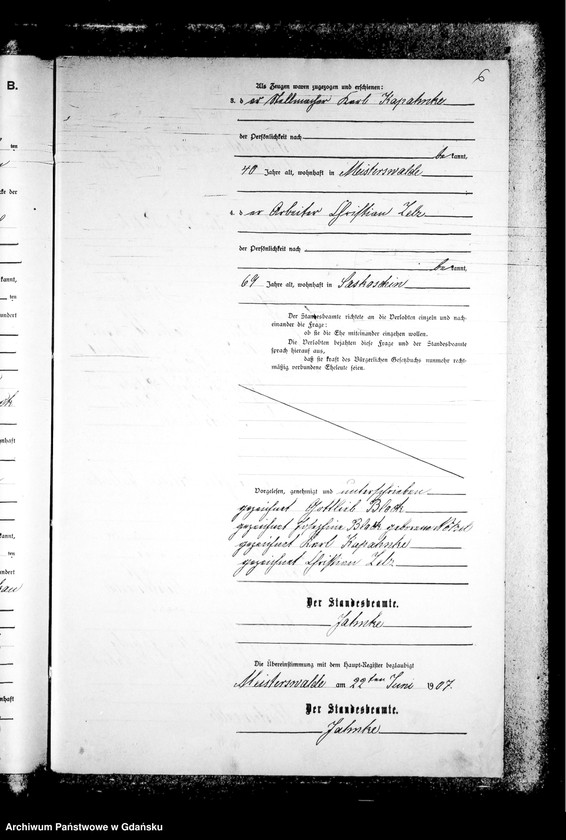 6
B.
Als Zeugen waren zugezogen und erschienen:
3. der Stellmacher Karl Kapahnke
der Persönlichkeit nach
bekannt,
40 Jahre alt, wohnhaft in Meisterswalde
4. der Arbeiter Christian Zelz
der Persönlichkeit nach
bekannt,
69 Jahre alt, wohnhaft in Saskoschin
Der Standesbeamte richtete an die Verlobten einzeln und nach-
einander die Frage:
ob sie die Ehe miteinander eingehen wollen.
Die Verlobten bejahten diese Frage und der Standesbeamte
sprach hierauf aus,
daß sie kraft des Bürgerlichen Gesetzbuchs nunmehr recht-
mäßig verbundene Eheleute seien.
Vorgelesen, genehmigt und unterschrieben
gezeichnet Gottlieb Block
gezeichnet Josephine Block geborene Nötzel
gezeichnet Karl Kapahnke
gezeichnet Christian Zelz
Der Standesbeamte.
Jahnke
Die Übereinstimmung mit dem Haupt-Register beglaubigt
Meisterswalde am 22ten Juni 1907.
Der Standesbeamte.
Jahnke
Archiwum Państwowe w Gdańsku